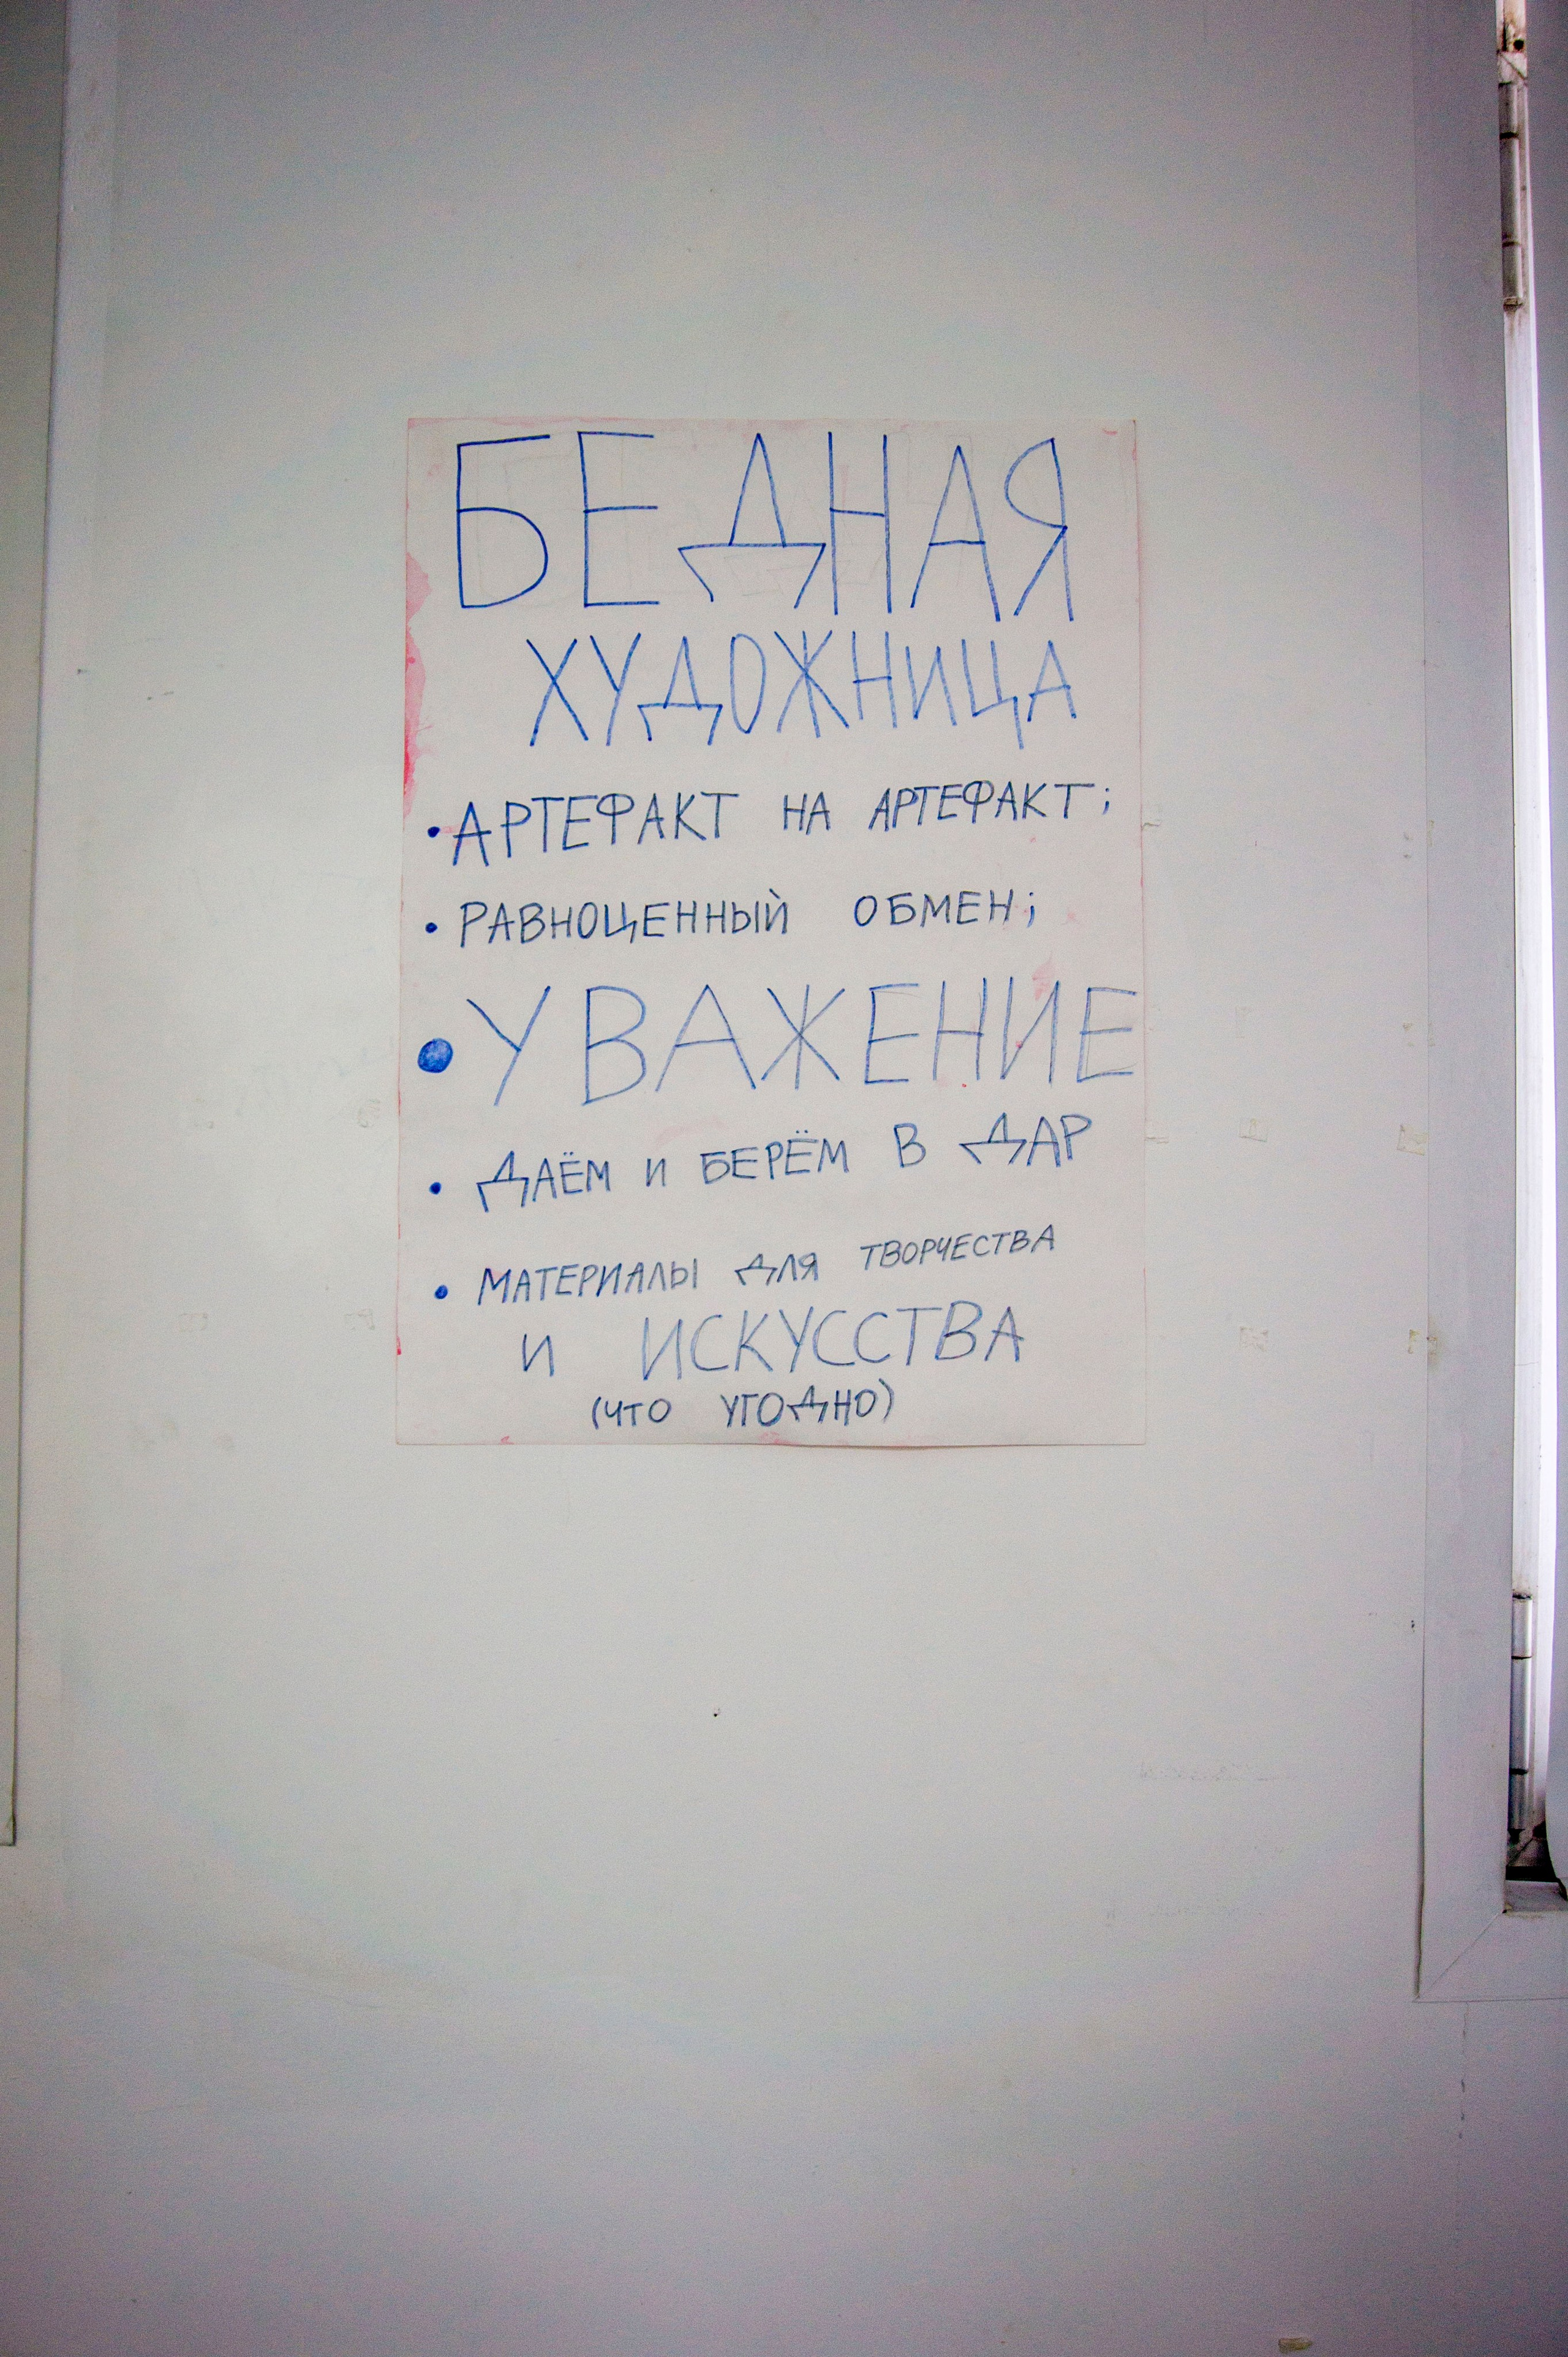 БЕДНАЯ
ХУДОЖНИЦА
• АРТЕФАКТ НА АРТЕФАКТ;
• РАВНОЦЕННЫЙ ОБМЕН;
• УВАЖЕНИЕ
• ДАЁМ И БЕРЁМ В ДАР
• МАТЕРИАЛЫ ДЛЯ ТВОРЧЕСТВА
И ИСКУССТВА
(ЧТО УГОДНО)